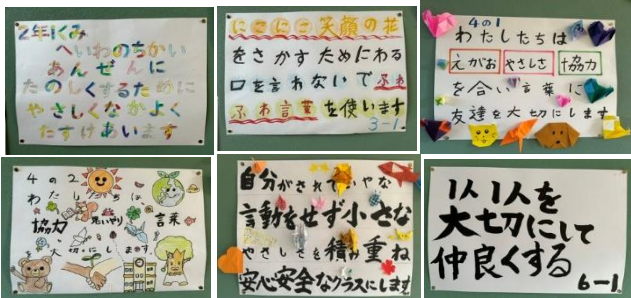 2年1くみ
へいわのちかい
あんぜんに
たのしくするために
やさしくなかよく
たすけあいます
にこにこ笑顔の花
をさかすためにわる
口を言わないでふわ
ふわ言葉を使います
3-1
4の1
わたしたちは
えがお やさしさ 協力
を合い言葉に
友達を大切にします
4の2
わたしたちは、
協力 思いやり 言葉
を大切にします。
自分がされていやな
言動をせず小さな
やさしさを積み重ね
安心安全なクラスにします
1人1人を
大切にして
仲良くする
6-1